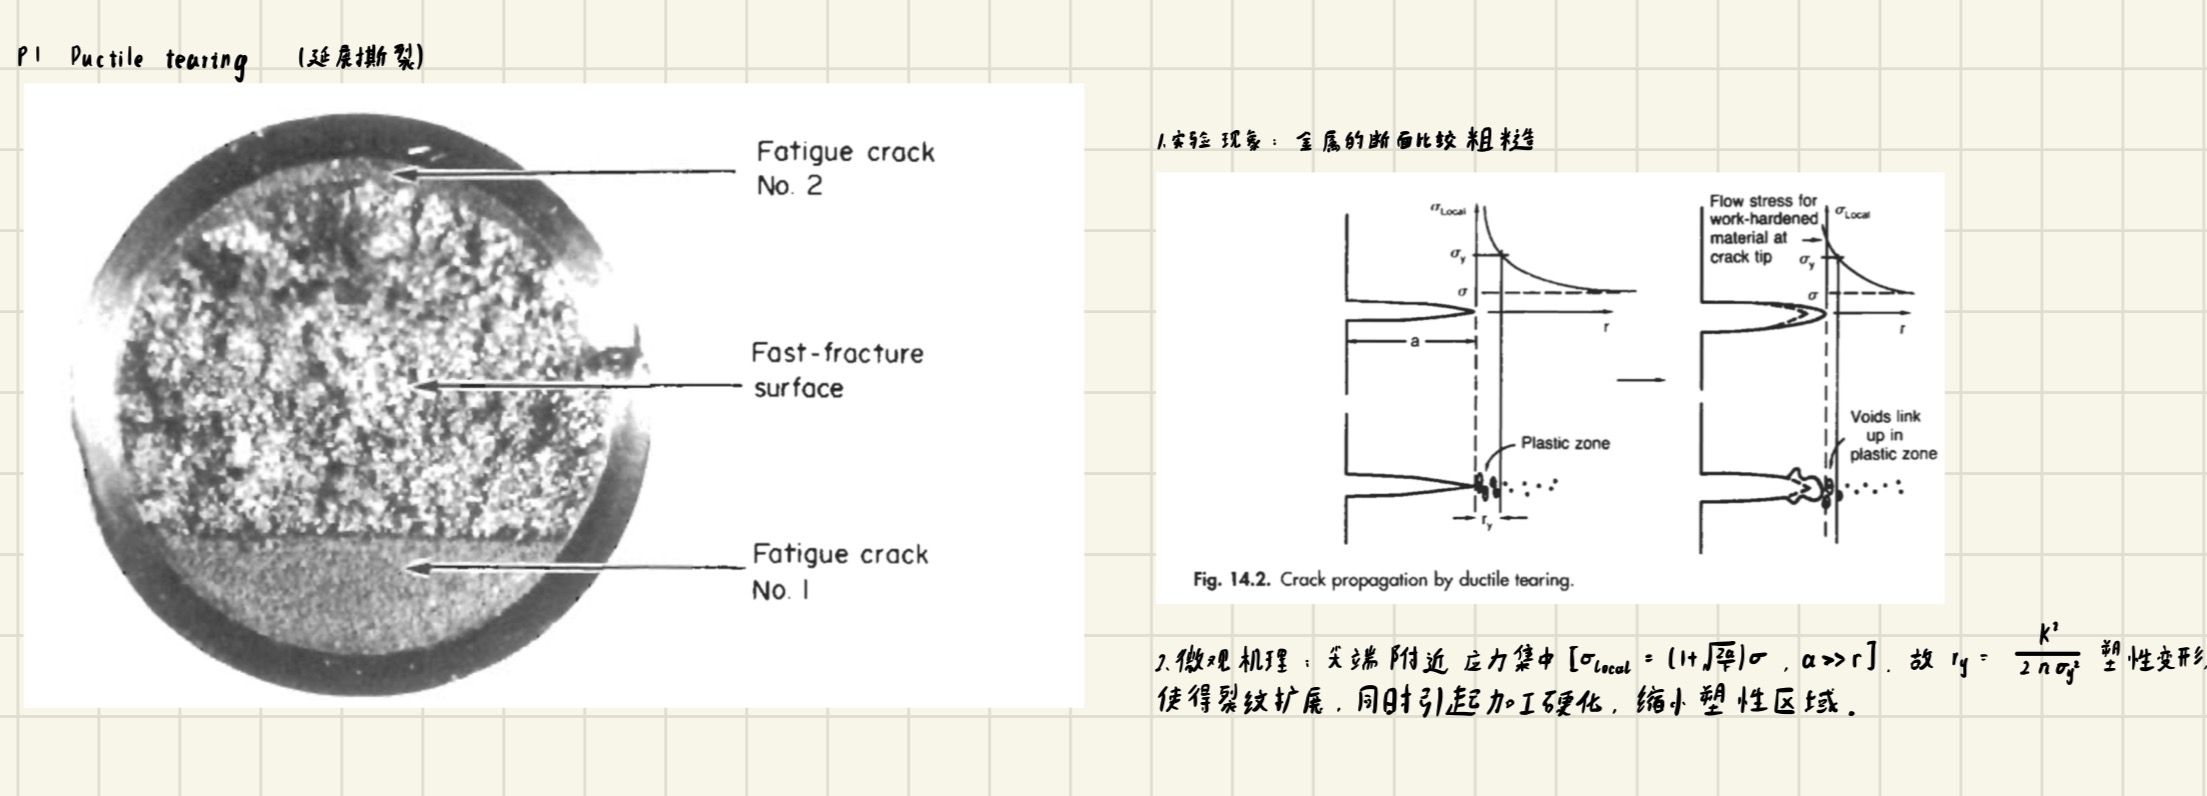 P1 Ductile tearing (延展撕裂)
Fatigue crack
No. 2
Fast-fracture
surface
Fatigue crack
No. 1
1.实验现象：金属的断面比较粗糙
σLocal
σy
σ
r
a
Plastic zone
ry
Flow stress for
work-hardened
material at
crack tip
σLocal
σy
σ
r
Voids link
up in
plastic zone
Fig. 14.2. Crack propagation by ductile tearing.
2.微观机理：尖端附近应力集中[σlocal = (1+√(2a/r))σ , a>>r]. 故 ry = K²/(2πσy²) 塑性变形
使得裂纹扩展，同时引起加工硬化，缩小塑性区域.